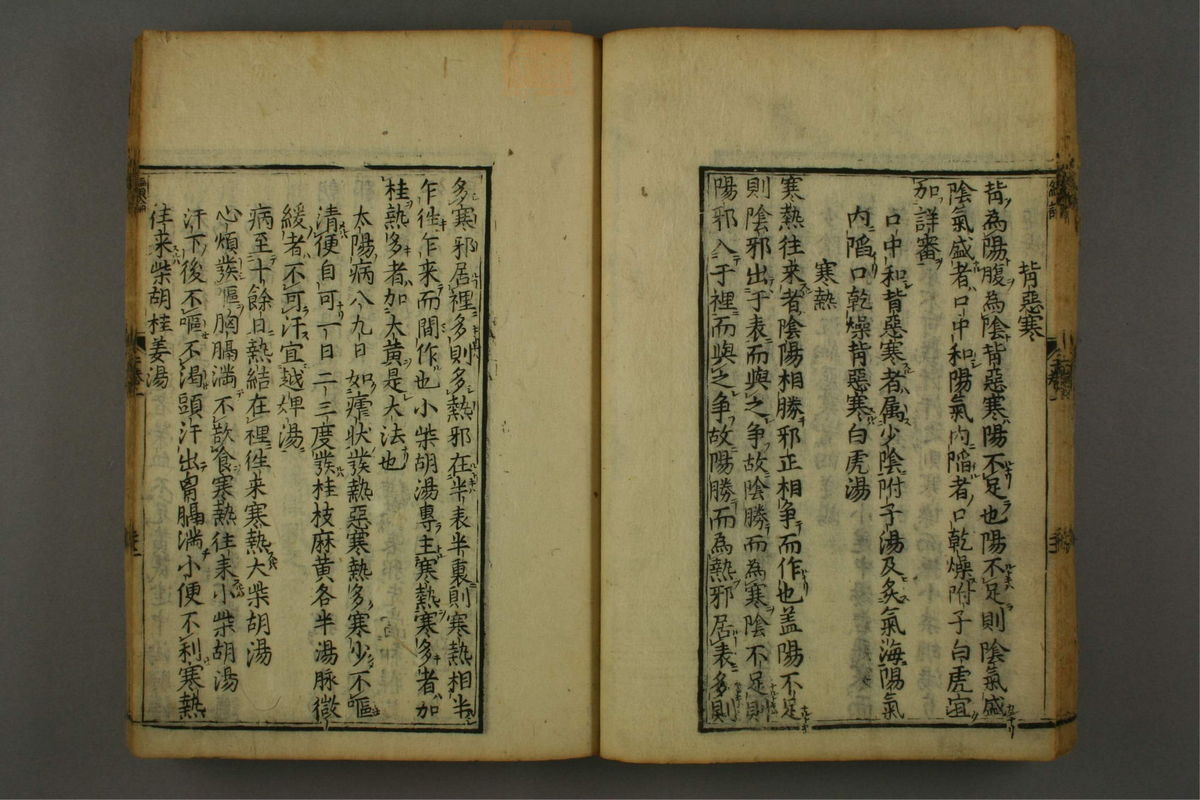 背惡寒
背為陽腹為陰背惡寒陽不足也陽不足則陰氣盛
陰氣盛者口中和陽氣內陷者口乾燥附子白虎宜
加詳審
口中和背惡寒者属少陰附子湯及炙氣海陽氣
內陷口乾燥背惡寒白虎湯
寒熱
寒熱往来者陰陽相勝邪正相争而作也盖陽不足
則陰邪出于表而與之争故陰勝而為寒陰不足則
陽邪入于裡而與之争故陽勝而為熱邪居表多則
多寒邪居裡多則多熱邪在半表半裏則寒熱相半
乍徃乍来而間作也小柴胡湯專主寒熱寒多者加
桂熱多者加大黄是大法也
太陽病八九日如瘧状發熱惡寒熱多寒少不嘔
清便自可一日二三度發桂枝麻黄各半湯脉微
緩者不可汗宜越婢湯
病至十餘日熱結在裡徃来寒熱大柴胡湯
心煩發嘔胸膈満不飲食寒熱往来小柴胡湯
汗下後不嘔不渴頭汗出胷膈満小便不利寒熱
往来柴胡桂姜湯